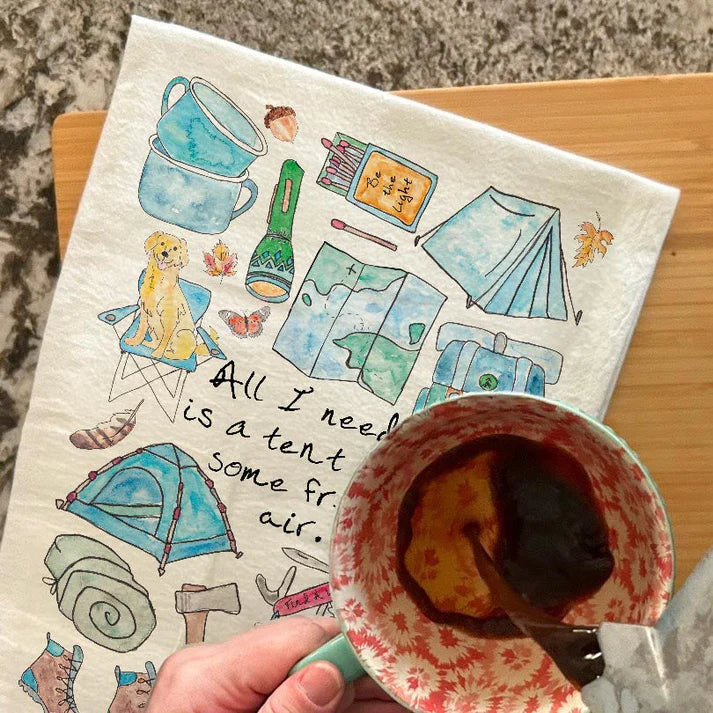 Be
the
light
All I need
is a tent
some fr
air.
Find A